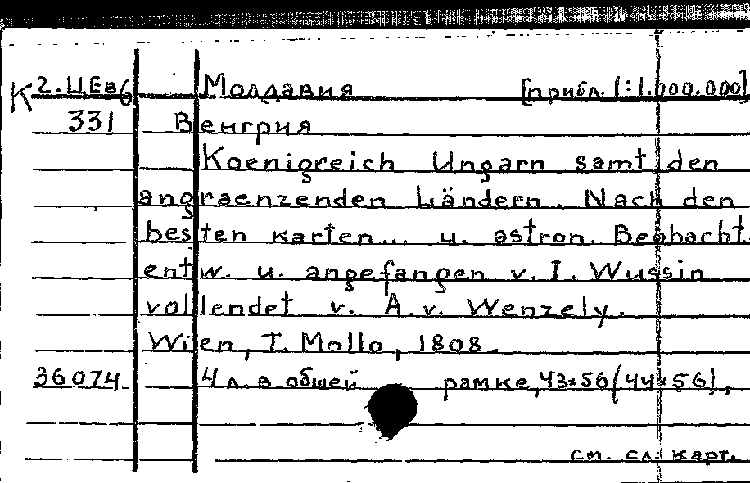 К 2.ЦЕвб Молдавия [прибл. 1:1.000.000]
331 Венгрия
Koenigreich Ungarn samt den
angraenzenden Ländern. Nach den
besten Karten... u. astron. Beobacht.
entw. u. angefangen v. I. Wussin
vollendet v. A. v. Wenzely.
Wien, T. Mollo, 1808.
36074 4 л. в общей рамке, 43×56 (44×56),
см. сл. карт.